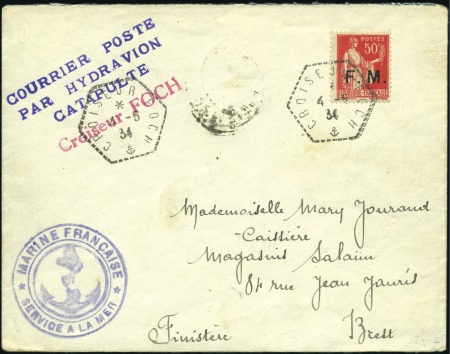 COURRIER POSTE
PAR HYDRAVION
CATAPULTÉ
Croiseur FOCH
CROISEUR FOCH
4 -6
34
POSTES
50c
F. M.
CROISEUR FOCH
4
34
MARINE FRANÇAISE
SERVICE A LA MER
Mademoiselle Mary Jourand
Caissière
Magasins Salaün
84 rue Jean Jaurès
Finistère Brest